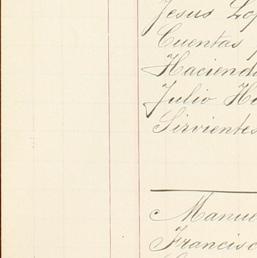 Jesus Lo
Cuentas
Haciend
Julio H
Sirvientes
Manue
Francisc